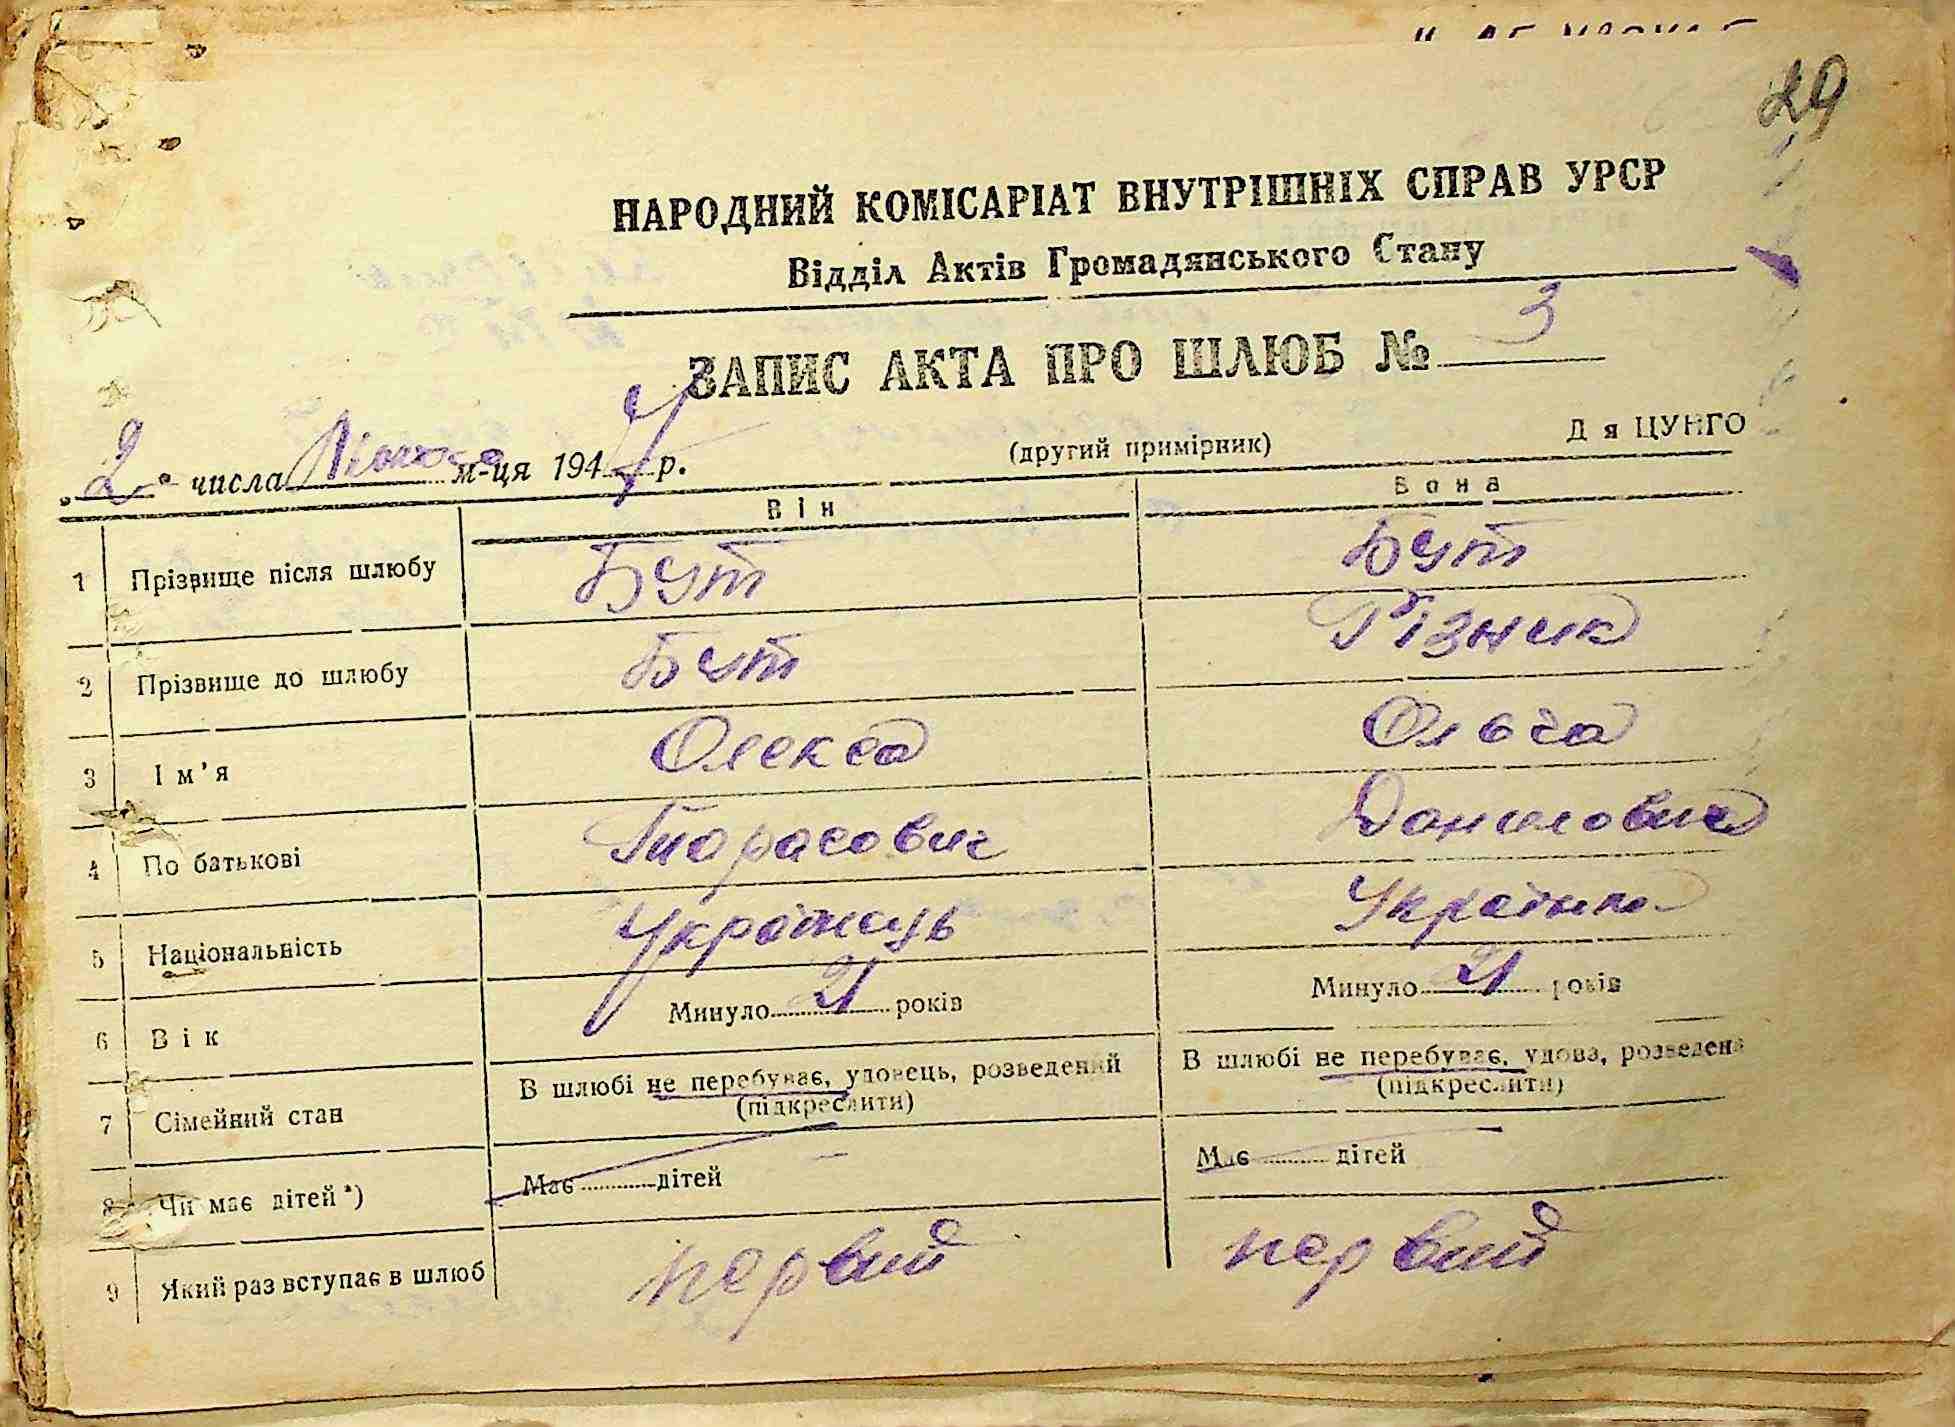 29
НАРОДНИЙ КОМІСАРІАТ ВНУТРІШНІХ СПРАВ УРСР
Відділ Актів Громадянського Стану
ЗАПИС АКТА ПРО ШЛЮБ № 3
"2" числа м-ця 1947 р. (другий примірник) Д я ЦУНГО
Він Вона
1 Прізвище після шлюбу Бут Бут
2 Прізвище до шлюбу Бут Різник
3 Ім'я Олекса Ольга
4 По батькові Тарасович Данилович
5 Національність Українець Українка
6 Вік Минуло 21 років Минуло 21 років
7 Сімейний стан В шлюбі не перебуває, удовець, розведений В шлюбі не перебуває, удова, розведена
(підкреслити) (підкреслити)
8 Чи має дітей *) Має дітей Має дітей
9 Який раз вступає в шлюб первий первий